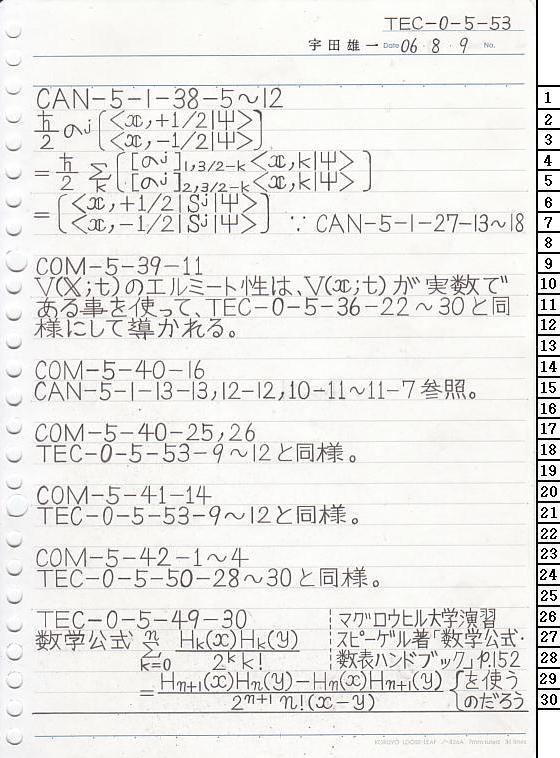 TEC-0-5-53
宇田雄一 Date 06・8・9 No.
CAN-5-1-38-5～12
ħ/2 のj [<x,+1/2|Ψ> <x,-1/2|Ψ>]
= ħ/2 Σk [[のj]1,3/2-k<x,k|Ψ> [のj]2,3/2-k<x,k|Ψ>]
= [<x,+1/2|Sj|Ψ> <x,-1/2|Sj|Ψ>] ∵ CAN-5-1-27-13～18
COM-5-39-11
V(X;t)のエルミート性は、V(x;t)が実数で
ある事を使って、TEC-0-5-36-22～30と同
様にして導かれる。
COM-5-40-16
CAN-5-1-13-13,12-12,10-11～11-7参照。
COM-5-40-25,26
TEC-0-5-53-9～12と同様。
COM-5-41-14
TEC-0-5-53-9～12と同様。
COM-5-42-1～4
TEC-0-5-50-28～30と同様。
TEC-0-5-49-30
数学公式 Σ(k=0→n) Hk(x)Hk(y) / 2^k k!
= Hn+1(x)Hn(y)-Hn(x)Hn+1(y) / 2^n+1 n!(x-y)
マグロウヒル大学演習
スピーゲル著「数学公式・
数表ハンドブック」P.152
を使う
のだろう
KOKUYO LOOSE-LEAF ノ-836A 7mm ruled 31 lines
1
2
3
4
5
6
7
8
9
10
11
12
13
14
15
16
17
18
19
20
21
22
23
24
25
26
27
28
29
30